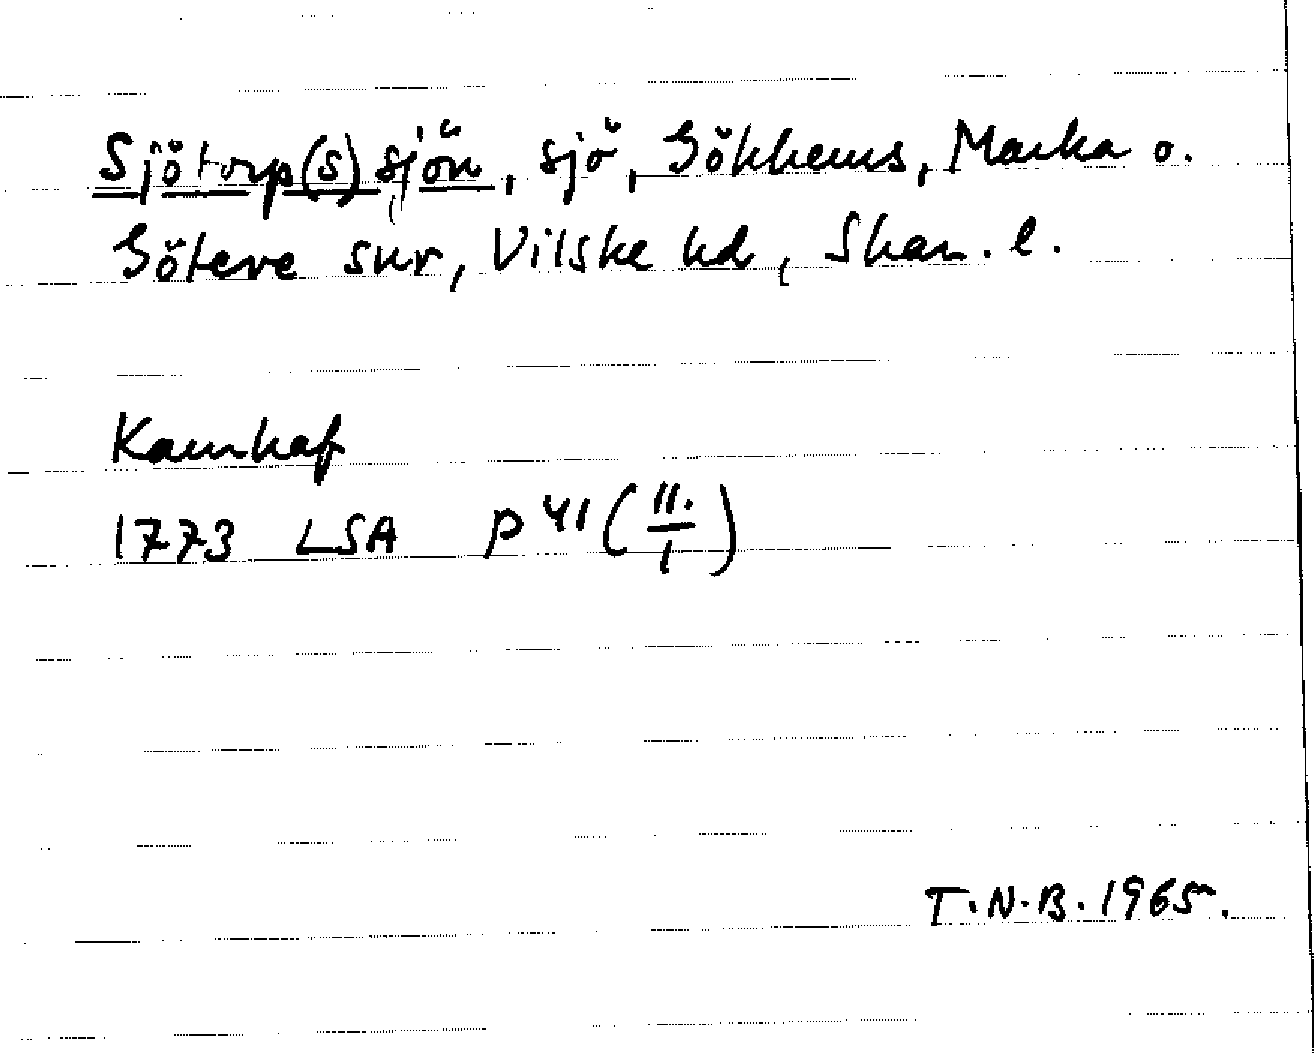 Sjötorp(s)sjön, sjö, Gökhems, Marka o.
Göteve snr, Vilske hd, Skar. l.
Kamhaf
1773 LSA P 41 (11./1)
T.N.B. 1965.